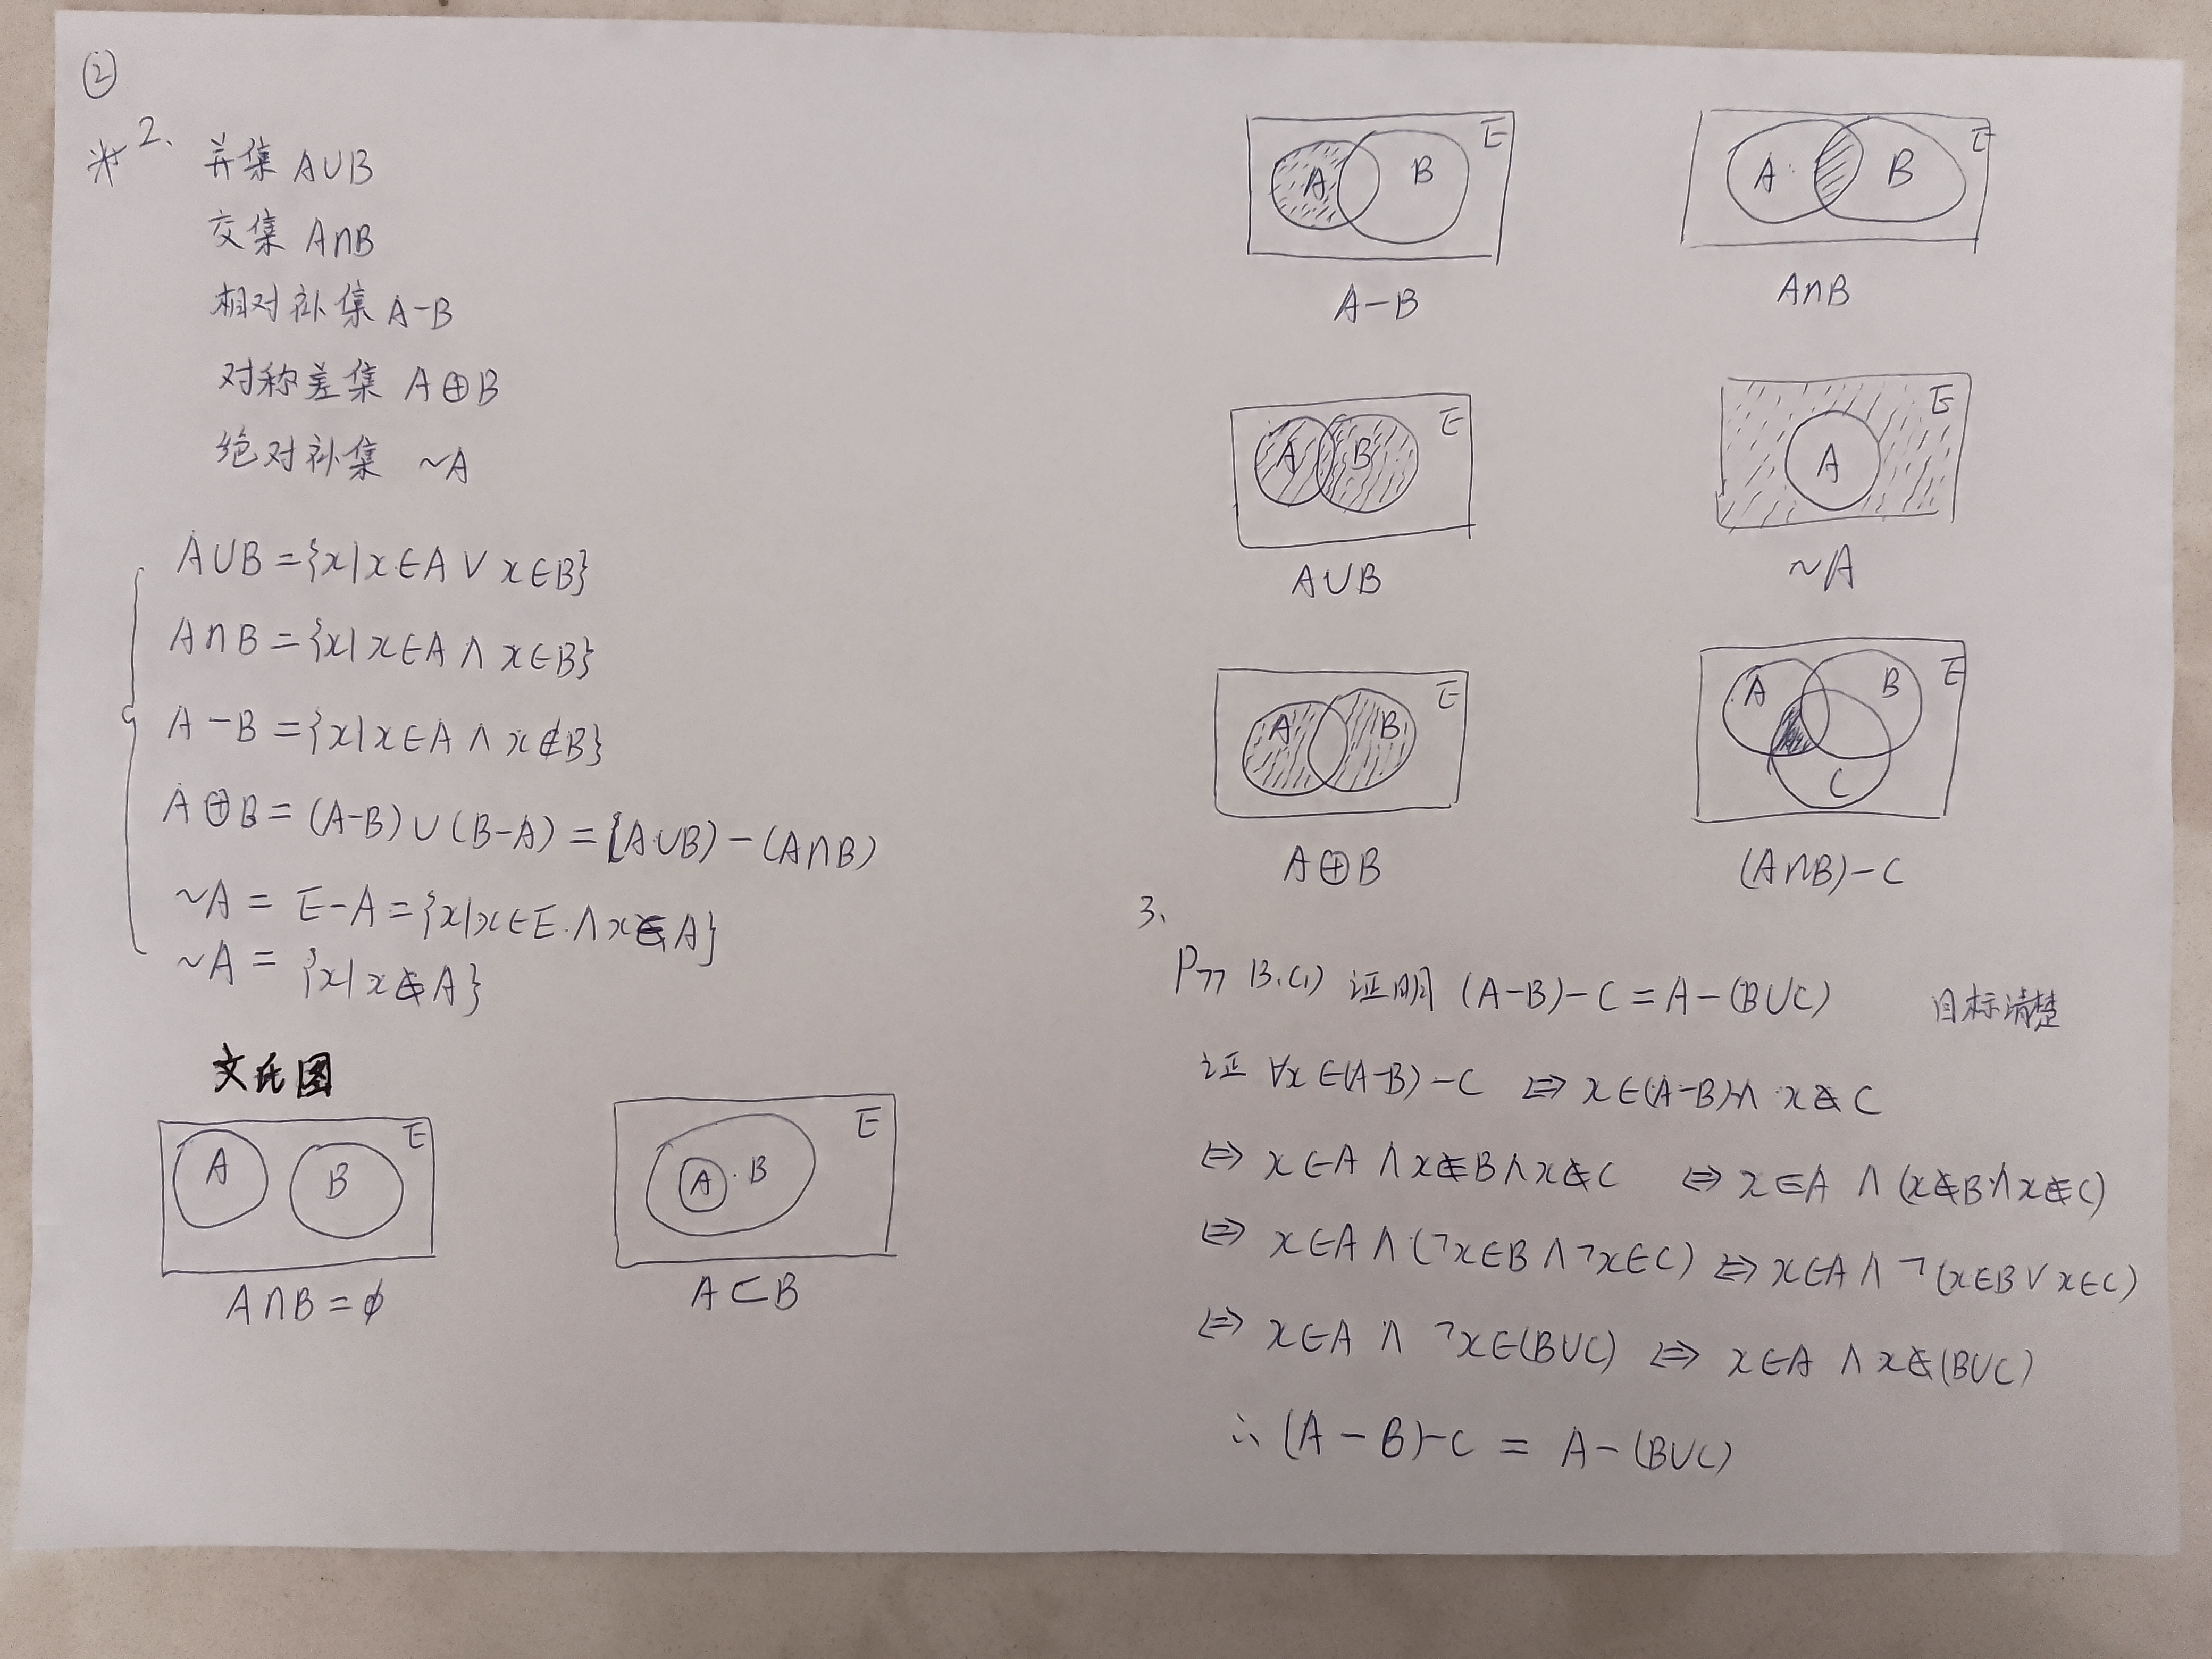 ②
※ 2、 并集 A∪B
交集 A∩B
相对补集 A-B
对称差集 A⊕B
绝对补集 ~A
A∪B={x|x∈A∨x∈B}
A∩B={x|x∈A∧x∈B}
A-B={x|x∈A∧x∉B}
A⊕B=(A-B)∪(B-A)=(A∪B)-(A∩B)
~A=E-A={x|x∈E∧x∉A}
~A={x|x∉A}
文氏图
A B E
A∩B=∅
A B E
A⊂B
A B E
A-B
A B E
A∩B
A B E
A∪B
A E
~A
A B E
A⊕B
A B C E
(A∩B)-C
3、
P77 13.(1) 证明 (A-B)-C=A-(B∪C) 目标清楚
证 ∀x∈(A-B)-C ⇔ x∈(A-B)∧x∉C
⇔ x∈A∧x∉B∧x∉C ⇔ x∈A∧(x∉B∧x∉C)
⇔ x∈A∧(¬x∈B∧¬x∈C) ⇔ x∈A∧¬(x∈B∨x∈C)
⇔ x∈A∧¬x∈(B∪C) ⇔ x∈A∧x∉(B∪C)
∴ (A-B)-C=A-(B∪C)